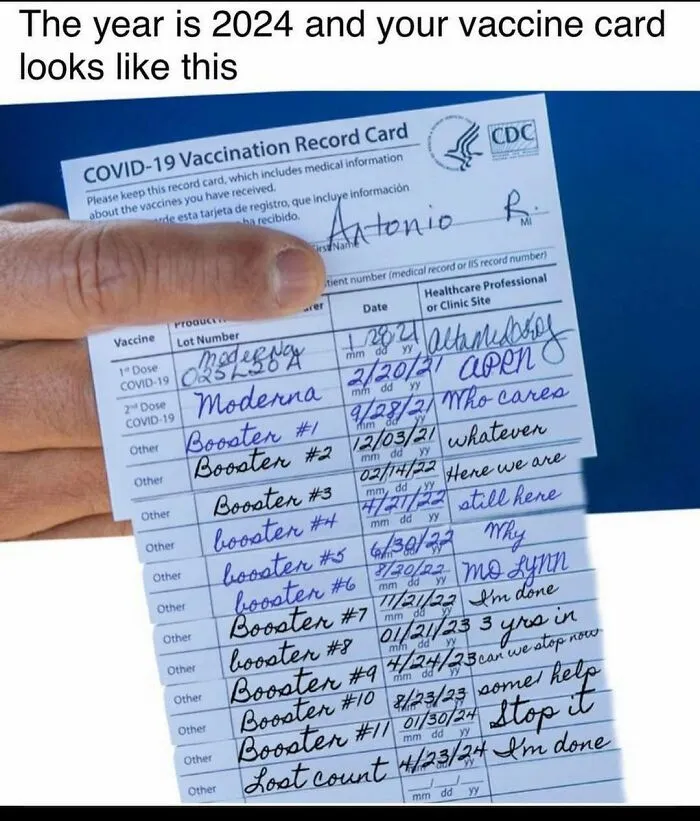 The year is 2024 and your vaccine card
looks like this
COVID-19 Vaccination Record Card
CDC
Please keep this record card, which includes medical information
about the vaccines you have received.
de esta tarjeta de registro, que incluye información
ha recibido.
Antonio R.
First Name MI
tient number (medical record or IIS record number)
Vaccine Lot Number Date Healthcare Professional
or Clinic Site
1st Dose
COVID-19 Moderna 1/28/21
mm dd yy
2nd Dose
COVID-19 Moderna 2/20/21
mm dd yy
Other Booster #1 9/28/21 Who cares
mm dd yy
Other Booster #2 12/03/21 whatever
mm dd yy
Other Booster #3 02/14/22 Here we are
mm dd yy
Other booster #4 4/21/22 still here
mm dd yy
Other booster #5 6/30/22 Why
Other booster #6 8/20/22 mo Lynn
mm dd yy
Other Booster #7 11/21/22 I'm done
mm dd yy
Other booster #8 01/21/23 3 yrs in
mm dd yy
Other Booster #9 4/24/23 can we stop now
mm dd yy
Other Booster #10 8/23/23 help
Other Booster #11 01/30/24 Stop it
mm dd yy
Other Lost count 4/23/24 I'm done
mm dd yy